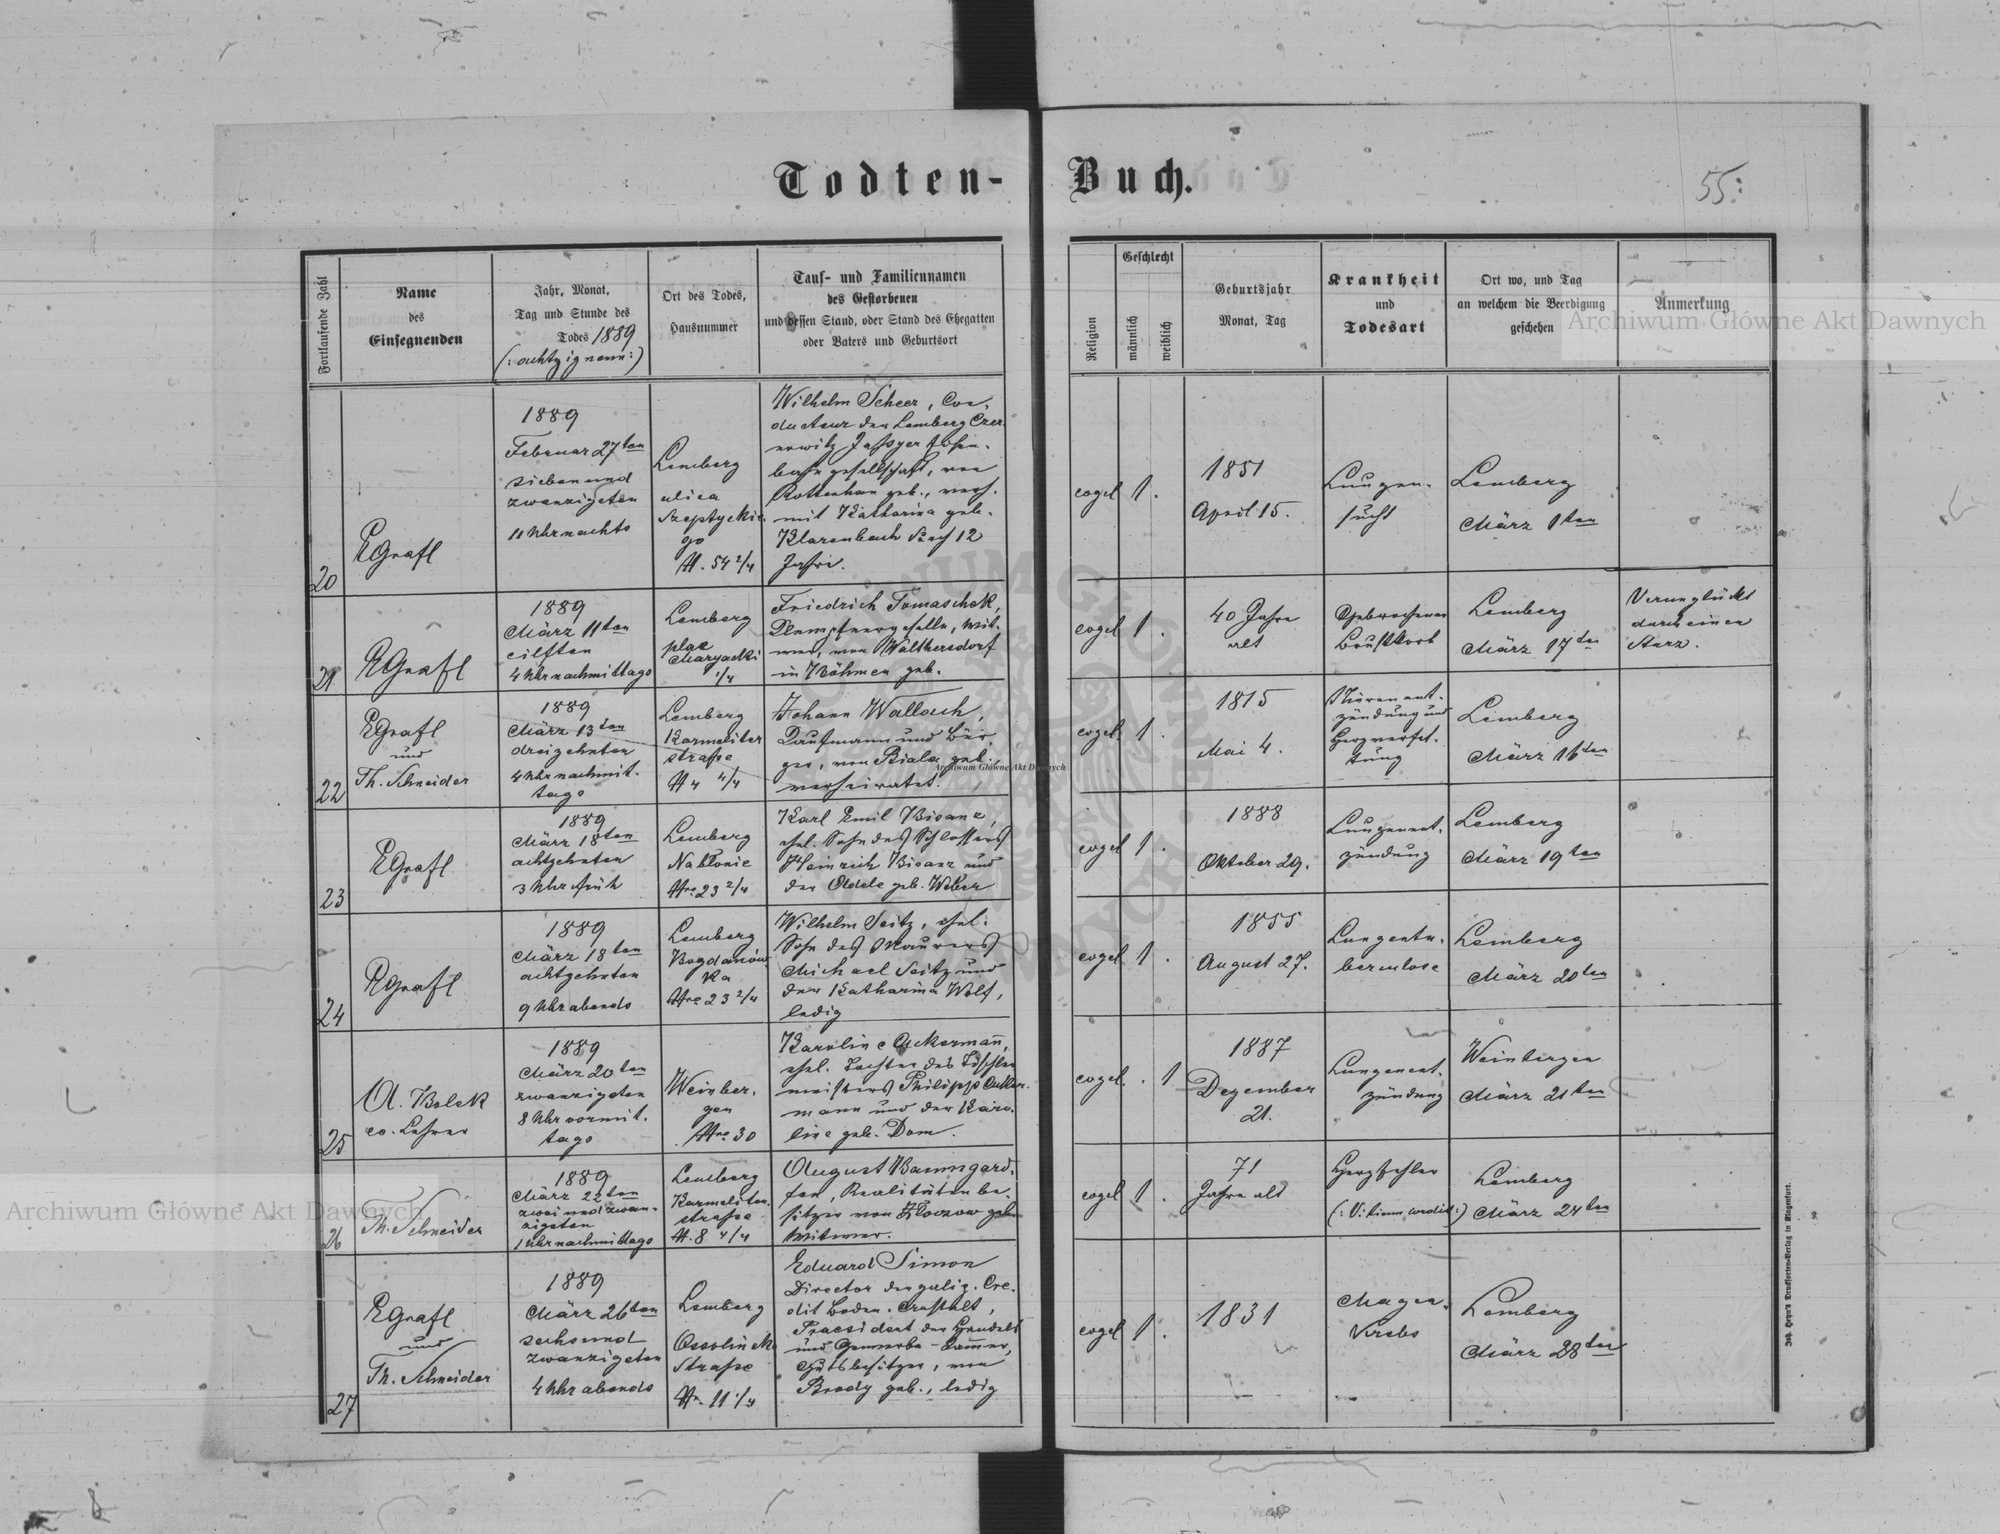 Todten-Buch.
55.
Fortlaufende Zahl
Name
des
Einsegnenden
Jahr, Monat,
Tag und Stunde des
Todes 1889
(: achtzig neun :)
Ort des Todes,
Hausnummer
Tauf- und Familiennamen
des Gestorbenen
und dessen Stand, oder Stand des Ehegatten
oder Vaters und Geburtsort
Religion
Geschlecht
männlich
weiblich
Geburtsjahr
Monat, Tag
Krankheit
und
Todesart
Ort wo, und Tag
an welchem die Beerdigung
geschehen
Anmerkung
20
EGrafl
1889
Februar 27ten
sieben und
zwanzigsten
11 Uhr nachts
Lemberg
ulica
Szeptyckie-
go
N. 54 2/4
Wilhelm Scheer, Con-
ducteur der Lemberg Czer-
nowitz Jassyer Eisen-
bahngesellschaft, von
Rottenhan geb., verh.
mit Katharina geb.
Klarenbach 12
Jahre.
evgel
1 .
1851
April 15.
Lungen-
sucht
Lemberg
März 1ten
21
EGrafl
1889
März 11ten
eilften
4 Uhr nachmittags
Lemberg
plac
Maryacki
1/4
Friedrich Tomaschek,
Klempnergeselle, Wit-
wer, von Walthersdorf
in Böhmen geb.
evgel
1 .
40 Jahre
alt
Gebrochener
Brustkorb
Lemberg
März 17ten
Verunglückt
durch einen
Sturz.
22
EGrafl
und
Th. Schneider
1889
März 13ten
dreizehnten
4 Uhr nachmit-
tags
Lemberg
Karmeliter
strasse
N 4 4/4
Johann Wallach,
Kaufmann und Bür-
ger, von Biala geb.,
verheiratet.
evgel
1 .
1815
Mai 4.
zündung und
Lemberg
März 16ten
23
EGrafl
1889
März 18ten
achtzehnten
3 Uhr früh
Lemberg
Na błonie
Nro 23 2/4
Karl Emil Bisanz,
ehel. Sohn des Schlossers
Heinrich Bisanz und
der Adele geb. Weber
evgel
1 .
1888
Oktober 29.
Lungenent-
zündung
Lemberg
März 19ten
24
EGrafl
1889
März 18ten
achtzehnten
9 Uhr abends
Lemberg
Bogdanów-
ka
Nro 23 2/4
Wilhelm Seitz, ehel.
Sohn des Maurers
Michael Seitz und
der Katharina Wolf,
ledig
evgel
1 .
1855
August 27.
Lungentu-
berculose
Lemberg
März 20ten
25
A. Bolek
ev. Lehrer
1889
März 20ten
zwanzigsten
8 Uhr vormit-
tags
Weinber-
gen
Nro 30
Karoline Ackermann,
ehel. Tochter des Tischler
meisters Philipp Acker-
mann und der Karo-
line geb. Dom.
evgel.
. 1
1887
Dezember
21.
Lungenent-
zündung
Weinbergen
März 21ten
26
Th. Schneider
1889
März 22ten
zwei und zwan-
zigsten
1 Uhr nachmittags
Lemberg
Karmeliter-
strasse
N. 8 4/4
August Baumgard-
ten, Realitätenbe-
sitzer von geb.
Witwer.
evgel
1 .
71
Jahre alt
Herzfehler
(: Vitium cordis :)
Lemberg
März 24ten
27
EGrafl
und
Th. Schneider
1889
März 26ten
sechs und
zwanzigsten
4 Uhr abends
Lemberg
Ossolinski
Strasse
Nr. 11 1/4
Eduard Simon
Director der galiz. Cre-
dit Boden-Anstalt,
Praesident der Handels
und Gewerbe-Kammer,
Gutsbesitzer, von
Brody geb., ledig
evgel
1 .
1831
Magen-
Krebs
Lemberg
März 28ten
Joh. Heyn's Drucksorten-Verlag in Klagenfurt.
Archiwum Główne Akt Dawnych
Archiwum Główne Akt Dawnych
Archiwum Główne Akt Dawnych